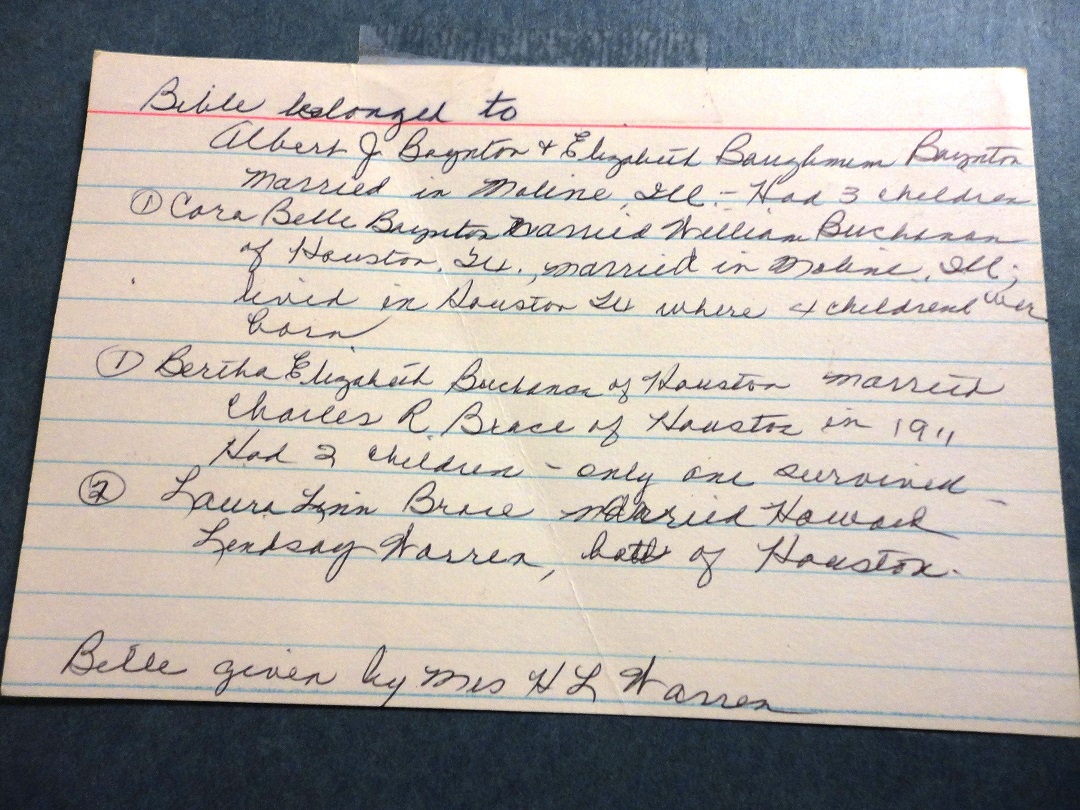 Bible belonged to
Albert J Boynton + Elizabeth Baughmum Boynton
married in Moline, Ill. - Had 3 children
① Cora Belle Boynton married William Buchanan
of Houston, Tx., married in Moline, Ill;
lived in Houston Tx where 4 childrend wer
born
① Bertha Elizabeth Buchanan of Houston married
Charles R Brace of Houston in 1911
Had 2 children - only one survived -
② Laura Linn Brace married Howard
Lendsay Warren, both of Houston.
Bible given by Mrs H L Warren